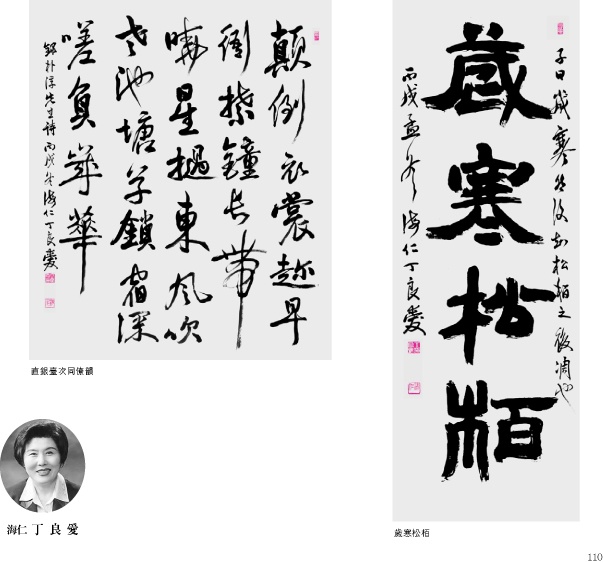 顚倒衣裳趂早
衙樓鐘長帶
曉星撾東風吹
老池塘草鎖宿深
嗟負歲華
錄朴淳先生詩 丙戌冬 海仁丁良愛
直銀臺次同僚韻
子曰歲寒然後知松栢之後凋也
歲寒松栢
丙戌孟冬 海仁丁良愛
歲寒松栢
海仁 丁良愛
110